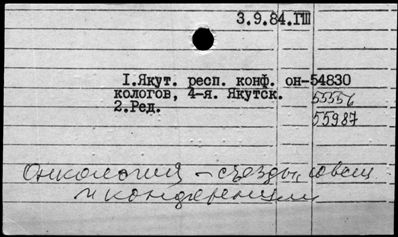 3.9.84.ГПШ
I.Якут. респ. конф. он-54830
кологов, 4-я. Якутск. 55556
2.Ред.
55987
Онкология – съезды, совещ
и конференции